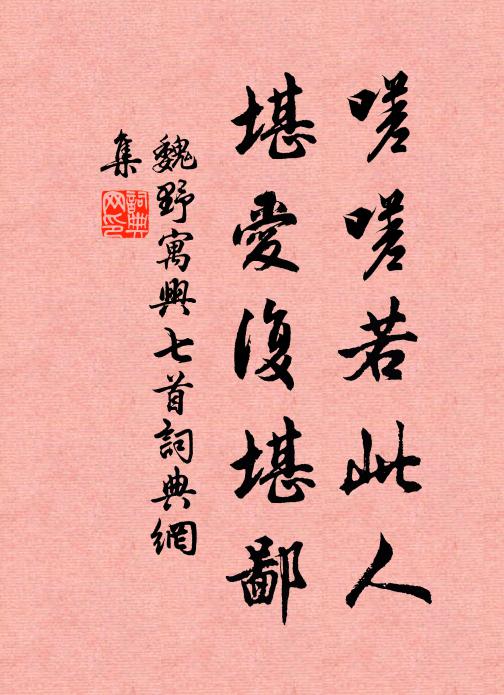 嗟嗟若此人
堪愛復堪鄙
魏野寓興七首詞典網
集
詞典网印